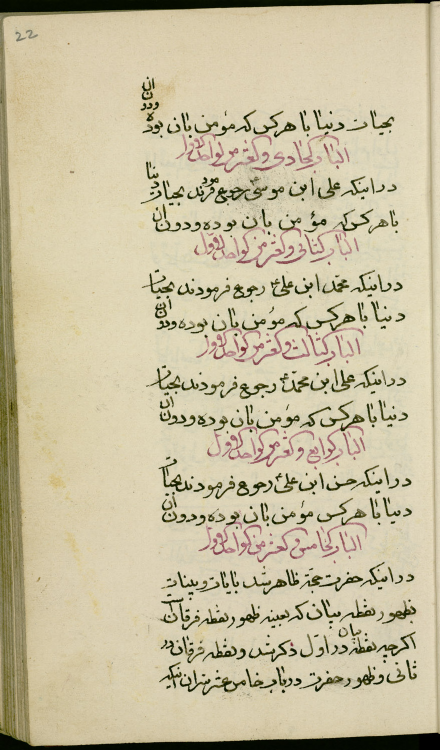 22
بحیات دنیا با هر کس که مؤمن بان بوده ودون ان
الباب الحادی والعشر من الواحد الاول
در اینکه علی ابن موسی رجوع فرمودند بحیات دنیا
با هر کس که مؤمن بان بوده ودون ان
الباب الثانی والعشر من الواحد الاول
در اینکه محمد ابن علی ع رجوع فرمودند بحیات
دنیا با هر کس که مؤمن بان بوده ودون ان
الباب الثالث والعشر من الواحد الاول
در اینکه علی ابن محمد ع رجوع فرمودند بحیات
دنیا با هر کس که مؤمن بان بوده ودون ان
الباب الرابع والعشر من الواحد الاول
در اینکه حسن ابن علی ع رجوع فرمودند بحیات
دنیا با هر کس مؤمن بان بوده ودون ان
الباب الخامس والعشر من الواحد الاول
در اینکه حضرت حجة ظاهر شد بایات وبینات
بظهور نقطه بیان که بعینه ظهور نقطه فرقان است
اکرچه نقطه بیان در اول ذکر شد ونقطه فرقان در
ثانی وظهور حضرت در باب خامس عشر سران اینکه